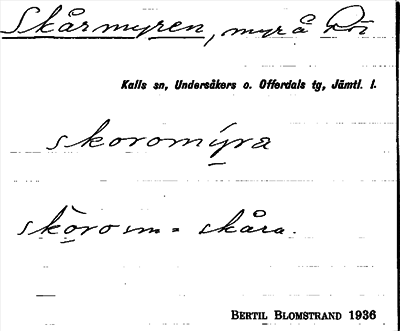 Skårmyren, myr å
Kalls sn, Undersåkers o. Offerdals tg, Jämtl. l.
skoromýra
skòro sm = skåra.
BERTIL BLOMSTRAND 1936